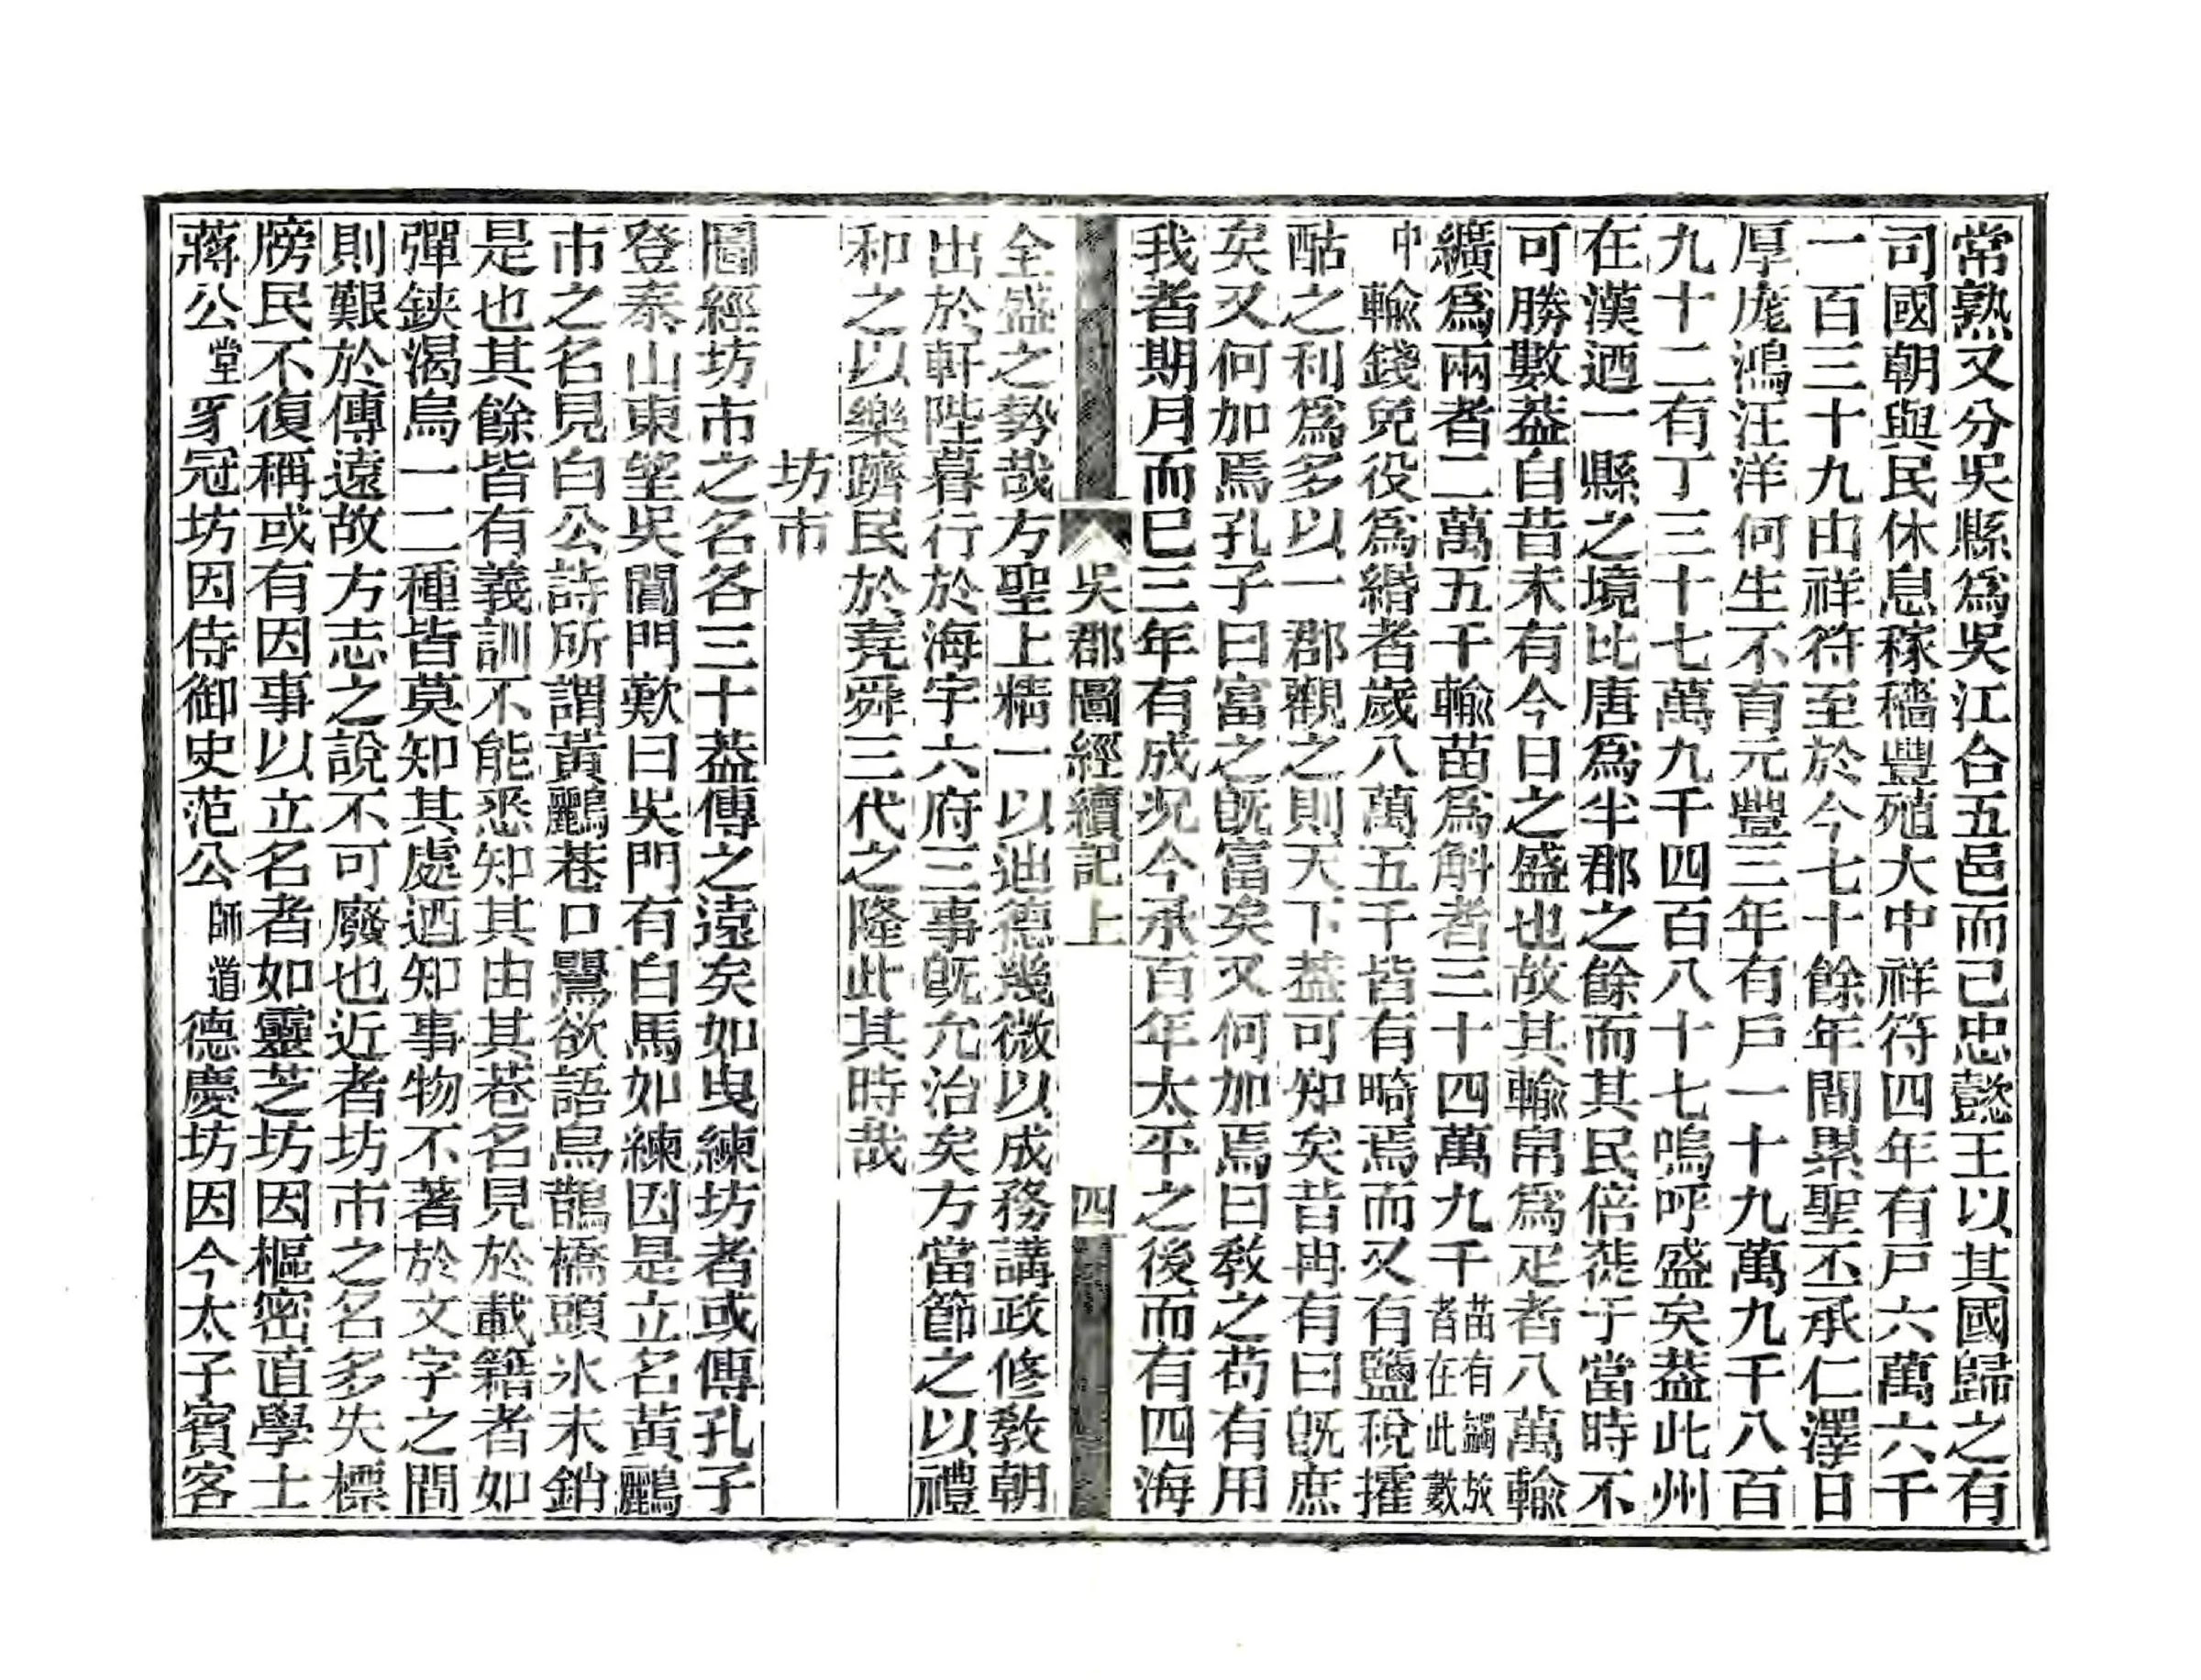 常熟又分吳縣爲吳江合五邑而已忠懿王以其國歸之有
司國朝與民休息稼穡豐殖大中祥符四年有戸六萬六千
一百三十九由祥符至於今七十餘年閒累聖丕承仁澤日
厚厖鴻汪洋何生不育元豐三年有戸一十九萬九千八百
九十二有丁三十七萬九千四百八十七嗚呼盛矣葢此州
在漢迺一縣之境比唐爲半郡之餘而其民倍蓰于當時不
可勝數葢自昔未有今日之盛也故其輸帛爲疋者八萬輸
纊爲兩者二萬五千輸苗爲斛者三十四萬九千苗有蠲放者在此數
中輸錢免役爲緡者歲八萬五千皆有畸焉而又有鹽稅搉
酤之利爲多以一郡觀之則天下葢可知矣昔冉有曰旣庶
矣又何加焉孔子曰富之旣富矣又何加焉曰敎之苟有用
我者期月而已三年有成况今承百年太平之後而有四海
吳郡圖經續記上 四
全盛之勢哉方聖上精一以迪德幾微以成務講政修敎朝
出於軒陛暮行於海宇六府三事旣允治矣方當節之以禮
和之以樂躋民於堯舜三代之隆此其時哉
坊市
圖經坊市之名各三十葢傳之遠矣如曳練坊者或傳孔子
登泰山東望吳閶門歎曰吳門有白馬如練因是立名黃鸝
市之名見白公詩所謂黃鸝巷口鸎欲語烏鵲橋頭氷未銷
是也其餘皆有義訓不能悉知其由其巷名見於載籍者如
彈鋏渴烏一二種皆莫知其處迺知事物不著於文字之閒
則艱於傳遠故方志之說不可廢也近者坊市之名多失標
牓民不復稱或有因事以立名者如靈芝坊因樞密直學士
蔣公堂豸冠坊因侍御史范公師道德慶坊因今太子賓客